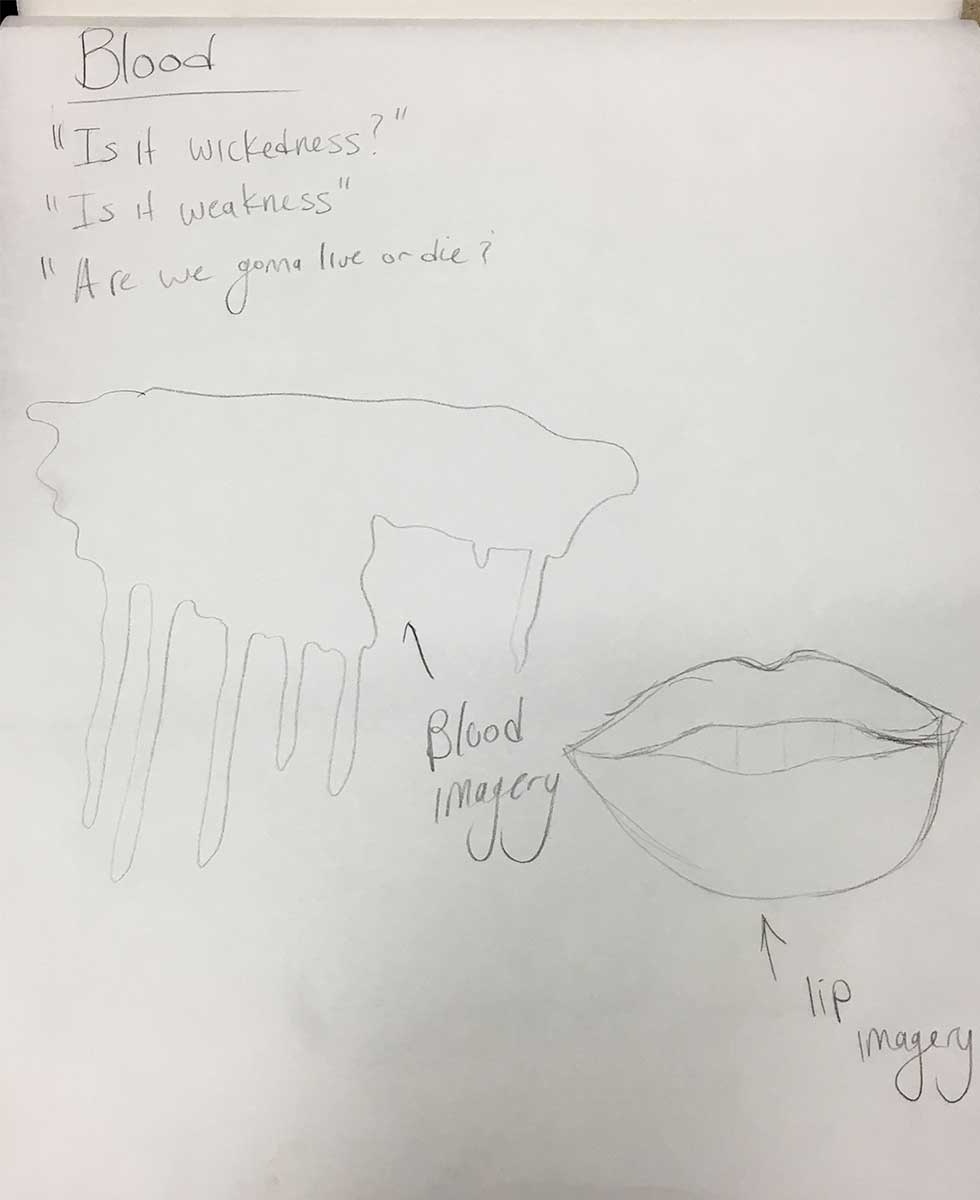 Blood
"Is it wickedness?"
"Is it weakness"
"Are we gonna live or die?
Blood
imagery
lip
imagery